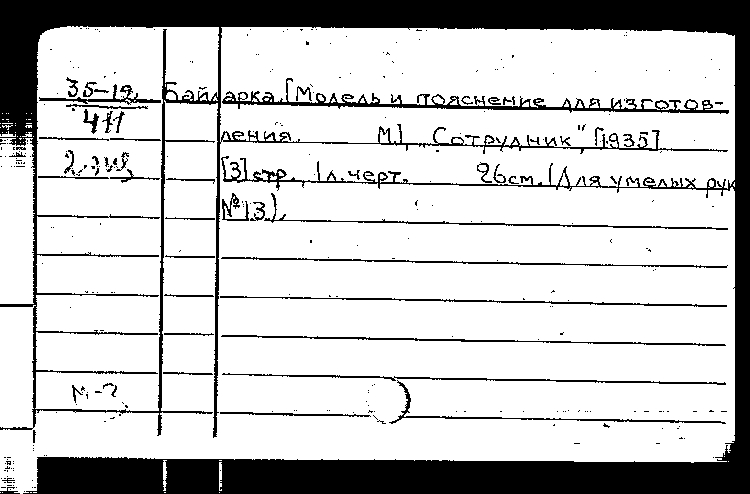 35-19 Байдарка. [Модель и пояснение для изготов-
411 ления. М.], „Сотрудник", [1935]
2 экз [3] стр., 1 л. черт. 26 см. (Для умелых рук
№ 13).